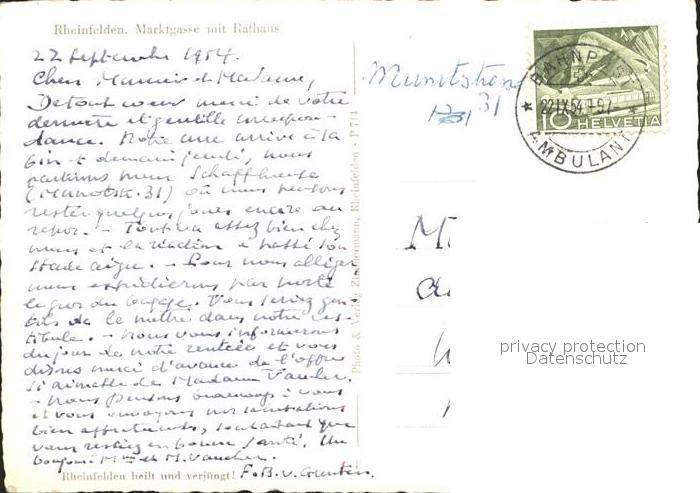 Rheinfelden. Marktgasse mit Rathaus
22 Septembre 1954.
Chers Monsieur et Madame,
De tout coeur merci de votre
dernière et gentille correspon-
dance. Notre cure arrive à la
fin et demain jeudi, nous
partirons pour Schaffhouse
(Munotstr. 31) où nous pensons
rester quelques jours encore au
repos. - Tout va assez bien chez
nous et la réaction a passé son
stade aigu. - Pour nous alléger
nous expédierons par poste
le gros du bagage. Vous seriez gen-
tils de le mettre dans notre ves-
tibule. - Nous vous informerons
du jour de notre rentrée et vous
disons merci d'avance de l'offre
si aimable de Madame Vaucher.
- Nous pensons beaucoup à vous
et vous envoyons nos salutations
bien affectueuses, souhaitant que
vous restiez en bonne santé. Un
bonjour à Mme et M. Vaucher.
F. B. v. Gunten.
Rheinfelden heilt und verjüngt!
Photo & Verlag Zimmermann, Rheinfelden - P 714
Munotstr.
31
BAHNPOST
22.IX.54
AMBULANT
10 HELVETIA
M.
privacy protection
Datenschutz